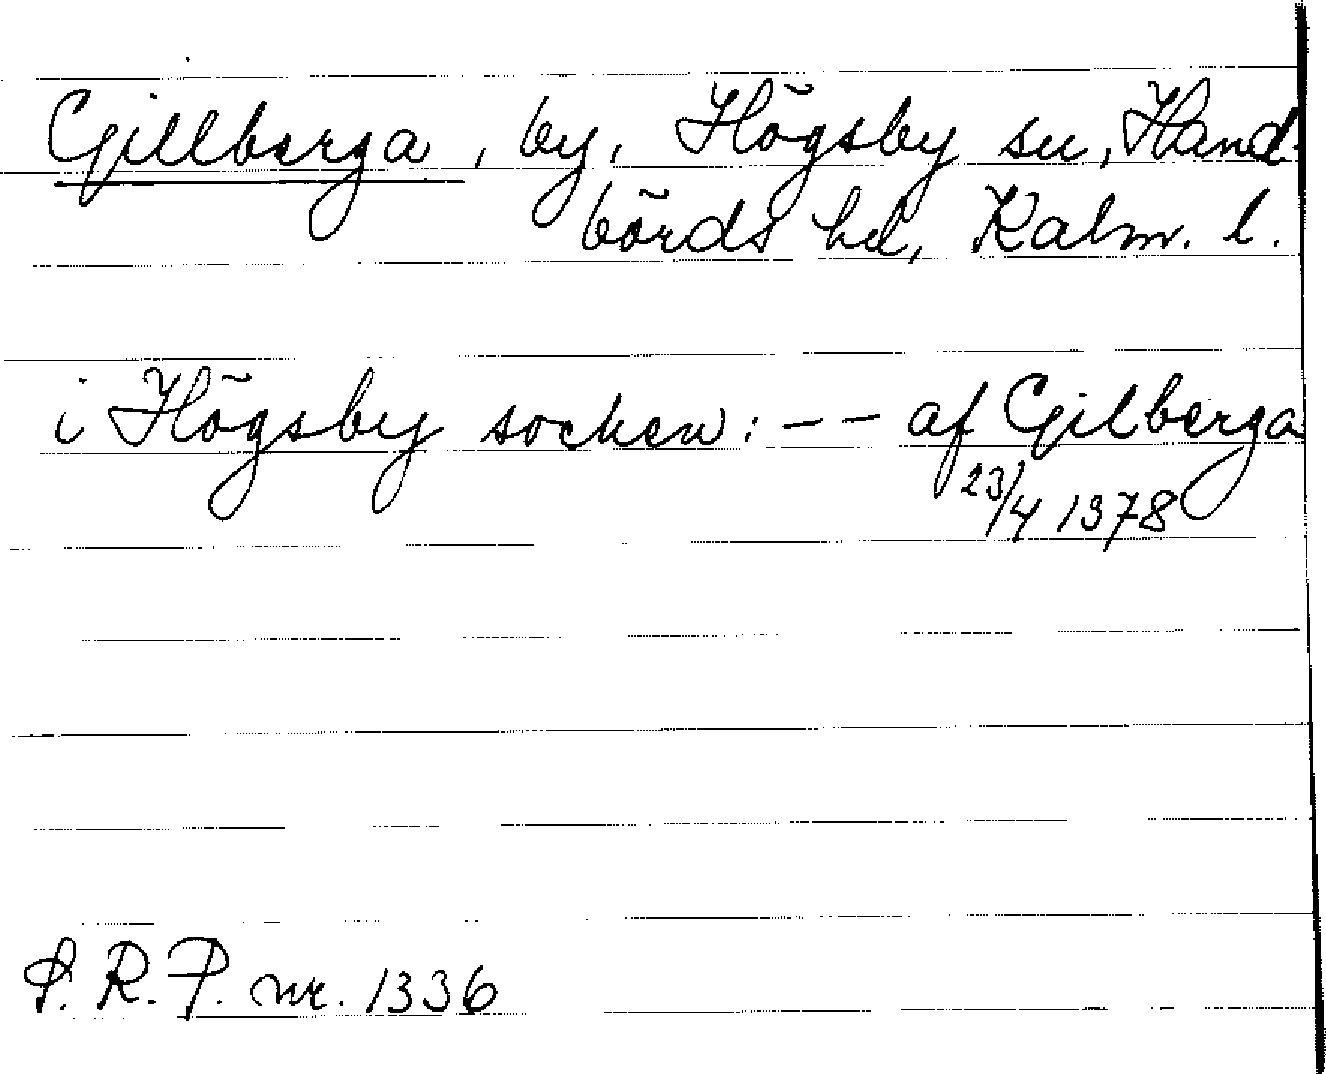 Gillberga, by, Högsby sn, Hand-
börds hd, Kalm. l.
i Högsby socken: -- af Gilberga
23/4 1378
S. R. P. nr. 1336